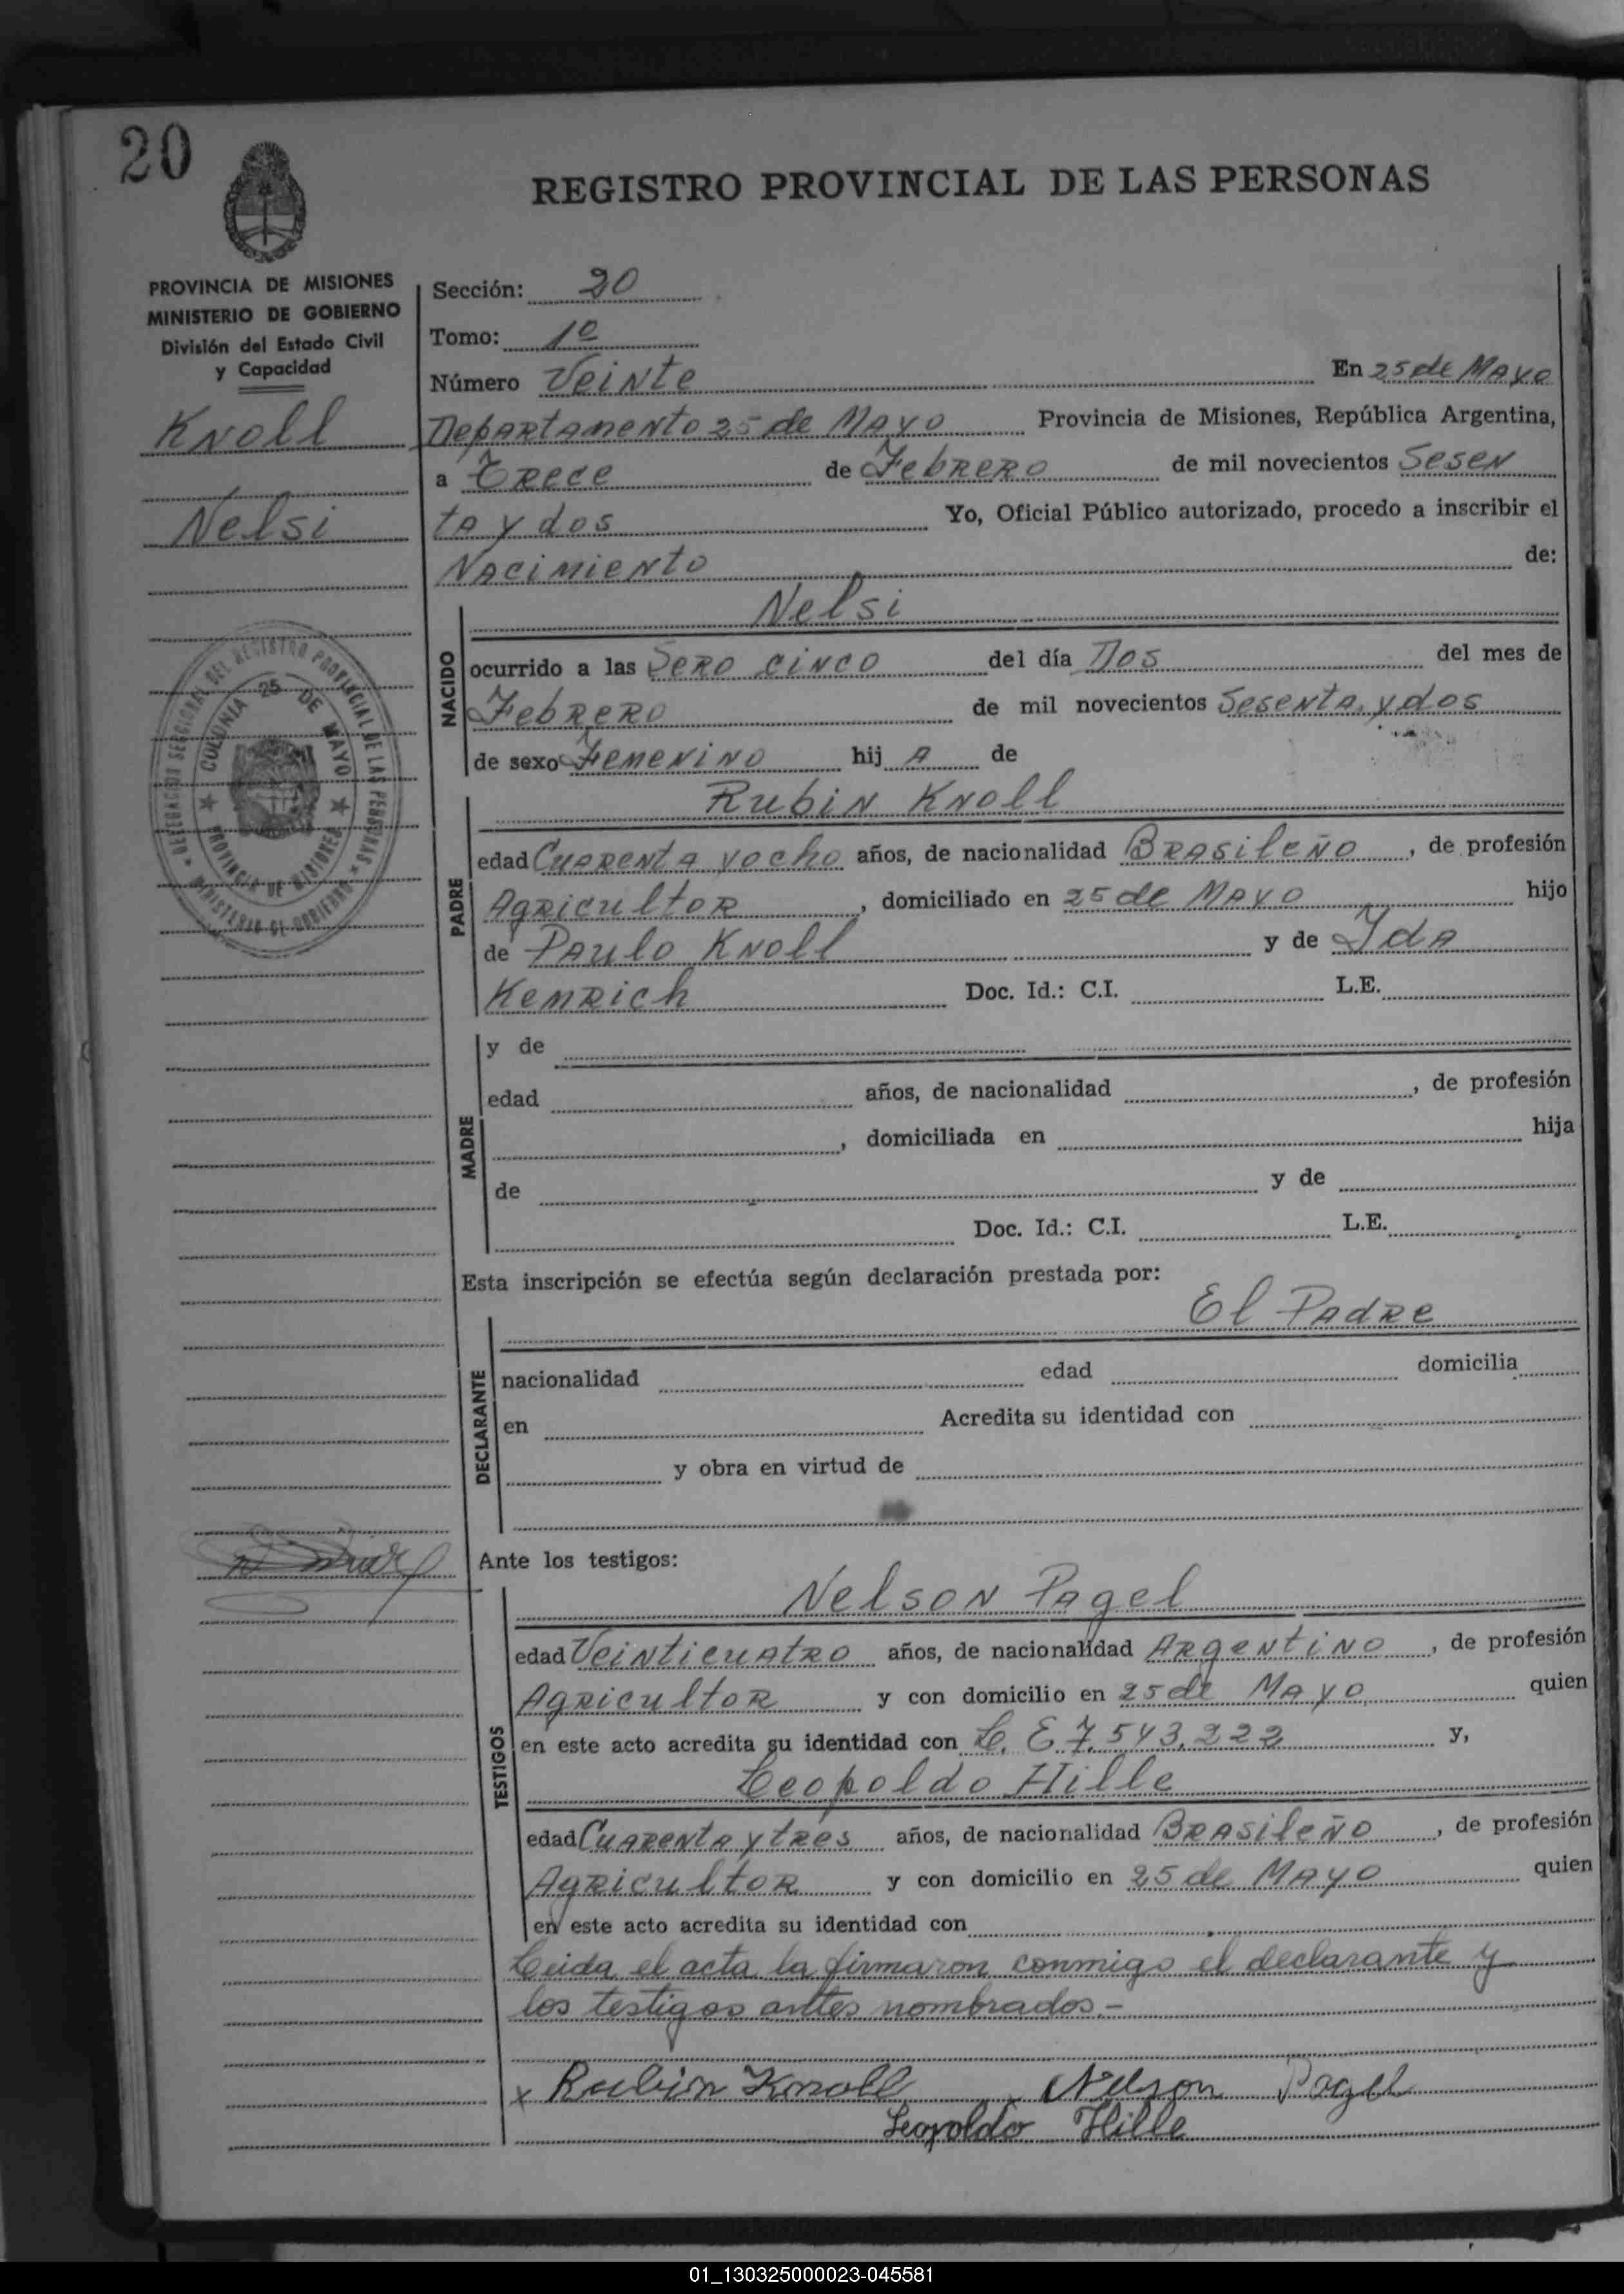 20
REGISTRO PROVINCIAL DE LAS PERSONAS
PROVINCIA DE MISIONES
MINISTERIO DE GOBIERNO
División del Estado Civil
y Capacidad
Knoll
Nelsi
DELEGACION SECCIONAL DEL REGISTRO PROVINCIAL DE LAS PERSONAS
MINISTERIO DE GOBIERNO
COLONIA 25 DE MAYO
PROVINCIA DE MISIONES
Sección: 20
Tomo: 1º
Número Veinte En 25 de Mayo
Departamento 25 de Mayo Provincia de Misiones, República Argentina,
a Trece de Febrero de mil novecientos Sesen
ta y dos Yo, Oficial Público autorizado, procedo a inscribir el
Nacimiento de:
NACIDO
Nelsi
ocurrido a las Sero cinco del día Dos del mes de
Febrero de mil novecientos Sesenta y dos
de sexo Femenino hij A de
PADRE
Rubin Knoll
edad Cuarenta y ocho años, de nacionalidad Brasileño, de profesión
Agricultor, domiciliado en 25 de Mayo hijo
de Paulo Knoll y de Ida
Kenrich Doc. Id.: C.I. L.E.
MADRE
y de
edad años, de nacionalidad , de profesión
, domiciliada en hija
de y de
Doc. Id.: C.I. L.E.
Esta inscripción se efectúa según declaración prestada por:
DECLARANTE
El Padre
nacionalidad edad domicilia
en Acredita su identidad con
y obra en virtud de
Ante los testigos:
TESTIGOS
Nelson Pagel
edad Veinticuatro años, de nacionalidad Argentino, de profesión
Agricultor y con domicilio en 25 de Mayo quien
en este acto acredita su identidad con L. E 7.543.222 y,
Leopoldo Hille
edad Cuarenta y tres años, de nacionalidad Brasileño, de profesión
Agricultor y con domicilio en 25 de Mayo quien
en este acto acredita su identidad con
Leida el acta la firmaron conmigo el declarante y
los testigos antes nombrados.-
x Rubin Knoll Nelson Pagel
Leopoldo Hille
01_130325000023-045581